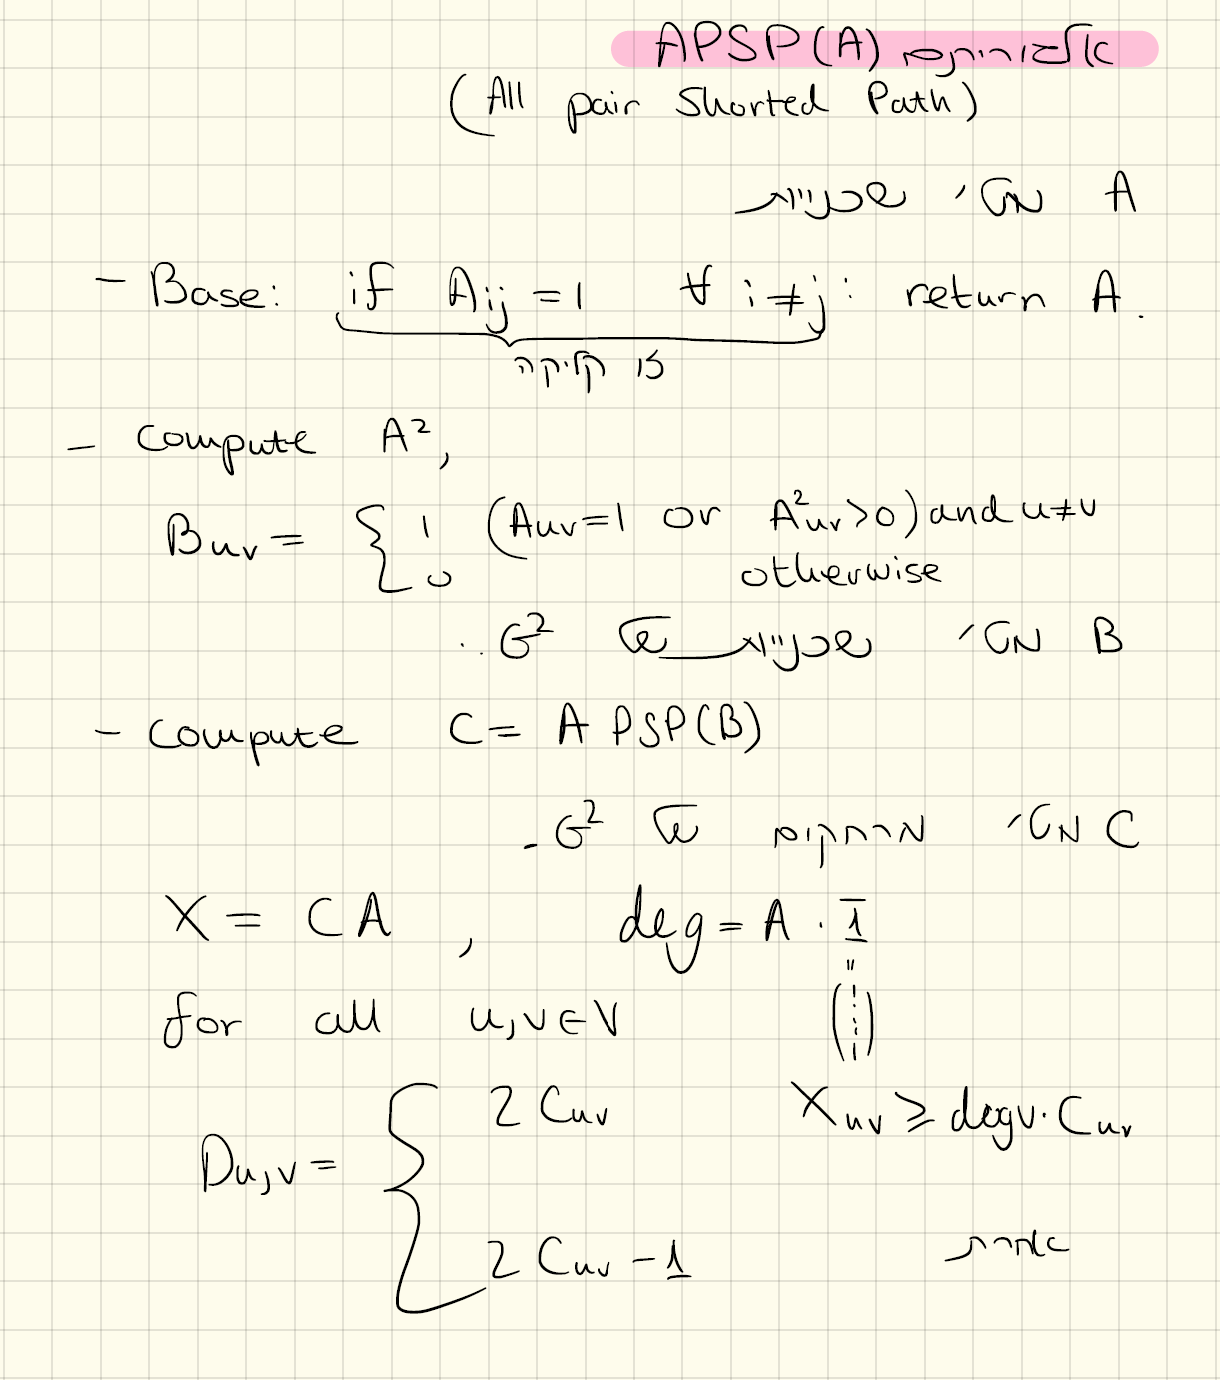 אלגוריתם APSP(A)
(All pair Shorted Path)
A מט' שכנויות
- Base: if Aij = 1 ∀ i ≠ j : return A.
זו קליקה
- Compute A²,
Buv = { 1 (Auv=1 or A²uv>0) and u≠v
0 otherwise
B מט' שכנויות של G² ..
- Compute C = APSP(B)
C מט' מרחקים של G² -
X = CA , deg = A · 1̄
"
(1⋮1)
for all u,v∈V
Du,v = { 2Cuv Xuv ≥ degv · Cuv
2Cuv - 1 אחרת